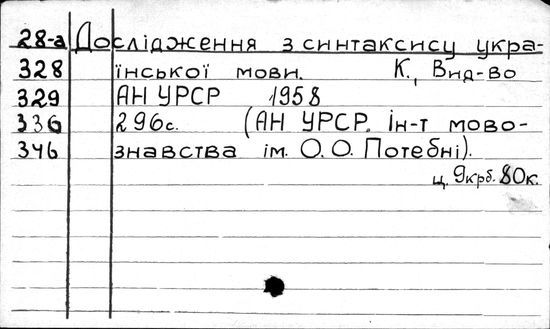 28-а Дослідження з синтаксису укра-
328 їнської мови. К., Вид-во
329 АН УРСР 1958
336 296с. (АН УРСР. Ін-т мово-
346 знавства ім. О. О. Потебні).
ц. 9крб. 80к.